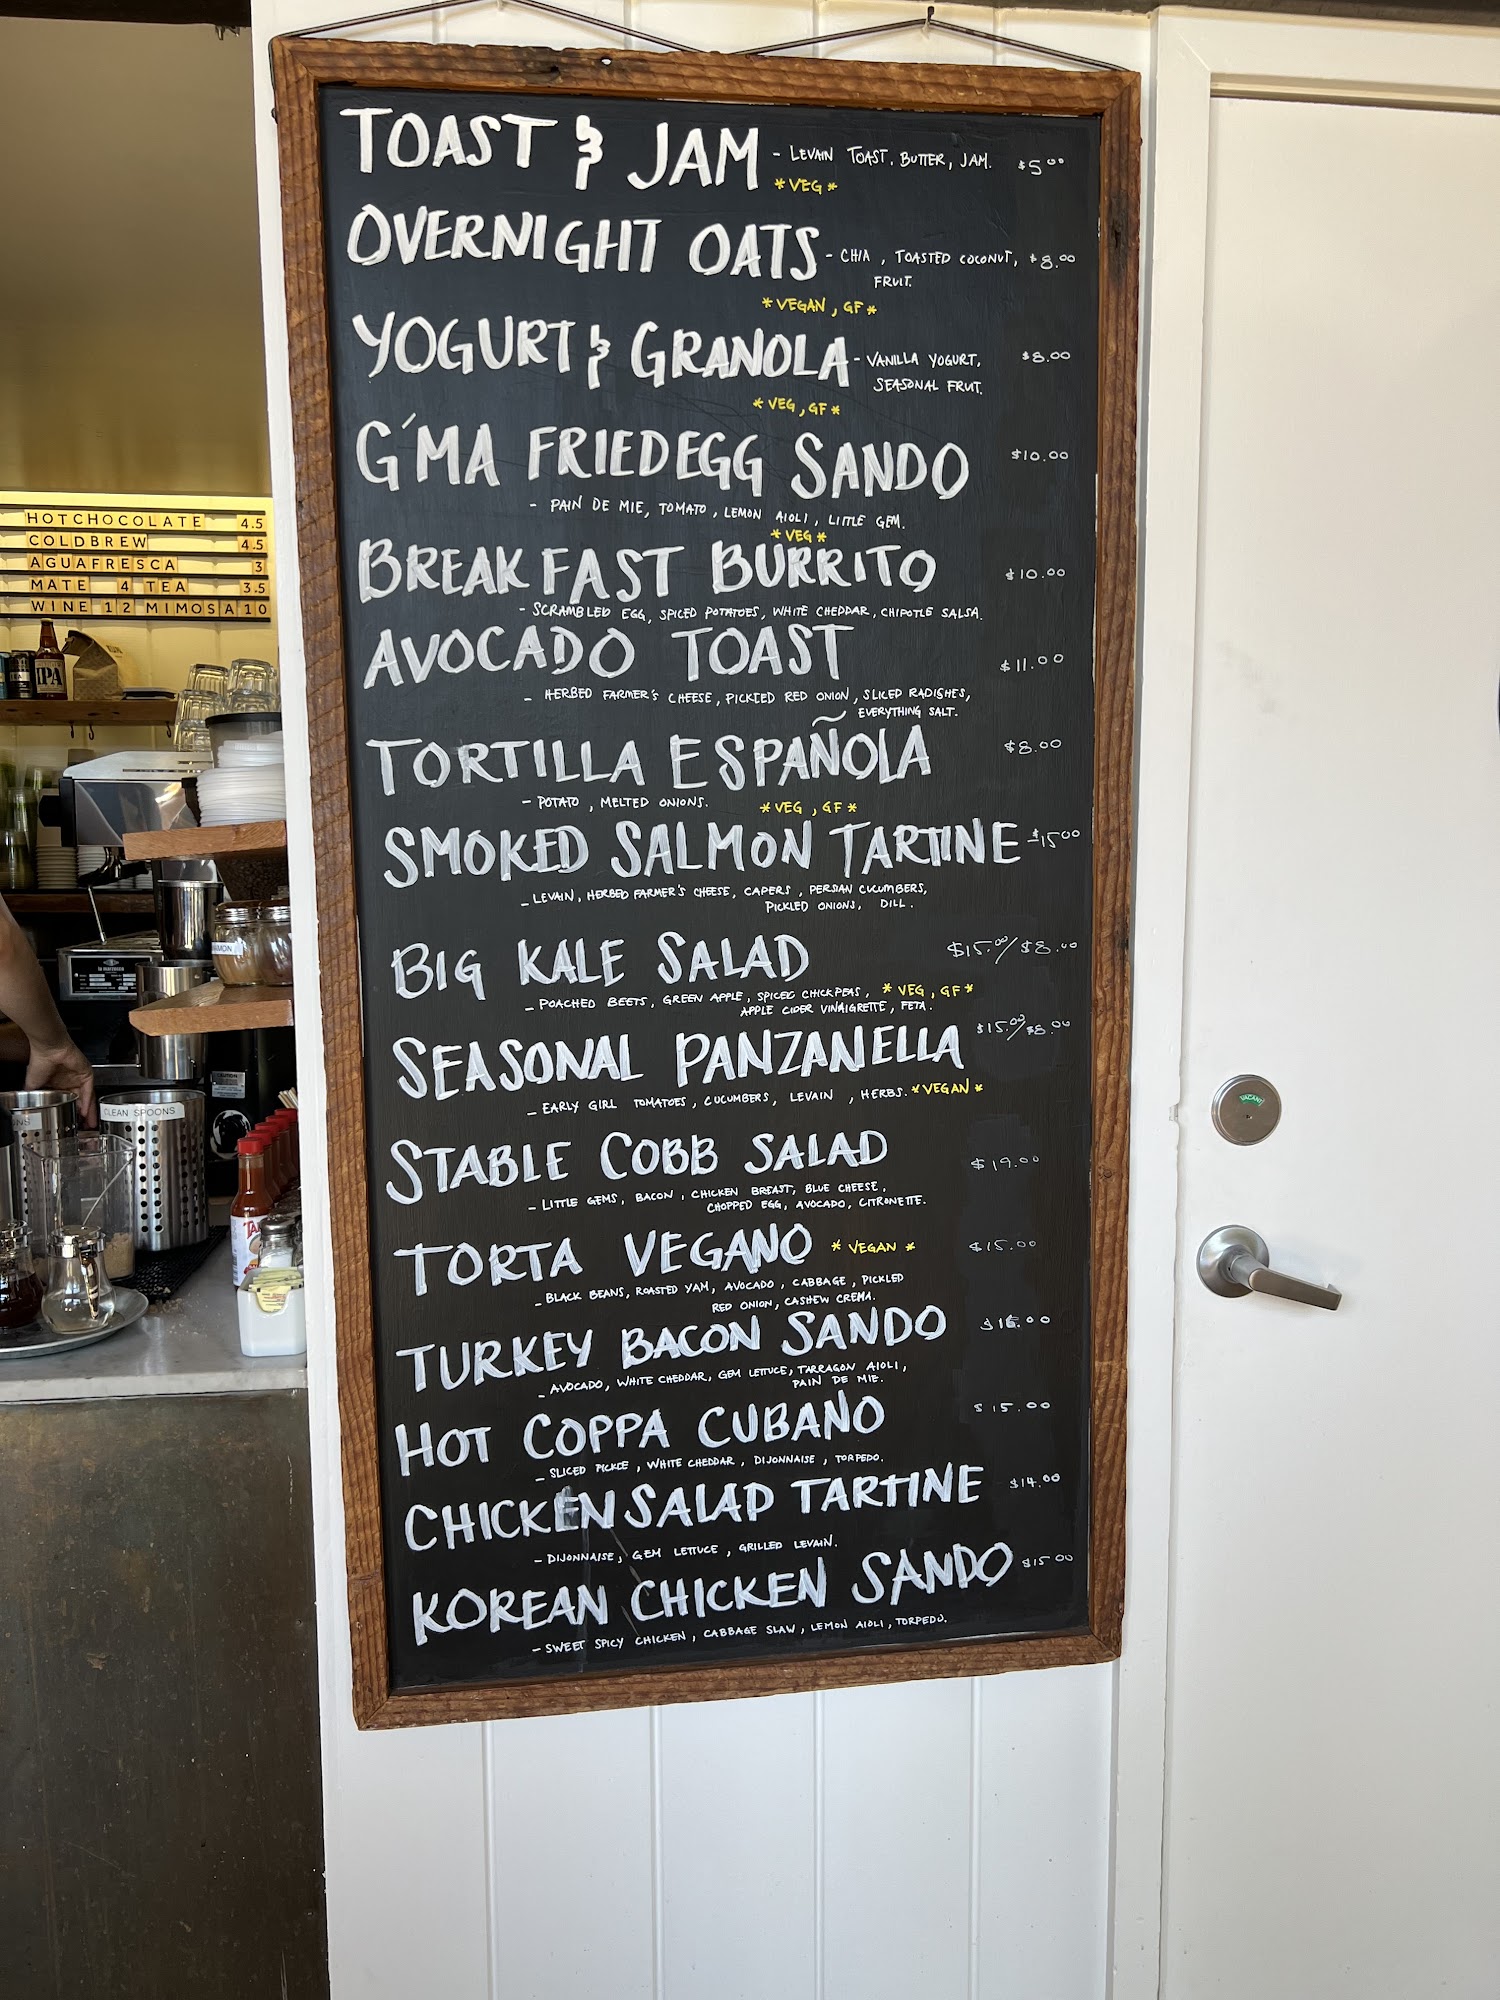 TOAST & JAM - LEVAIN TOAST, BUTTER, JAM. $5.00
*VEG*
OVERNIGHT OATS - CHIA, TOASTED COCONUT, $8.00
FRUIT.
*VEGAN, GF*
YOGURT & GRANOLA - VANILLA YOGURT, $8.00
SEASONAL FRUIT.
*VEG, GF*
G'MA FRIED EGG SANDO $10.00
- PAIN DE MIE, TOMATO, LEMON AIOLI, LITTLE GEM.
*VEG*
BREAKFAST BURRITO $10.00
- SCRAMBLED EGG, SPICED POTATOES, WHITE CHEDDAR, CHIPOTLE SALSA.
AVOCADO TOAST $11.00
- HERBED FARMER'S CHEESE, PICKLED RED ONION, SLICED RADISHES,
EVERYTHING SALT.
TORTILLA ESPAÑOLA $8.00
- POTATO, MELTED ONIONS. *VEG, GF*
SMOKED SALMON TARTINE $15.00
- LEVAIN, HERBED FARMER'S CHEESE, CAPERS, PERSIAN CUCUMBERS,
PICKLED ONIONS, DILL.
BIG KALE SALAD $15.00/$8.00
- POACHED BEETS, GREEN APPLE, SPICED CHICKPEAS, *VEG, GF*
APPLE CIDER VINAIGRETTE, FETA.
SEASONAL PANZANELLA $15.00/$8.00
- EARLY GIRL TOMATOES, CUCUMBERS, LEVAIN, HERBS. *VEGAN*
STABLE COBB SALAD $19.00
- LITTLE GEMS, BACON, CHICKEN BREAST, BLUE CHEESE,
CHOPPED EGG, AVOCADO, CITRONETTE.
TORTA VEGANO *VEGAN* $15.00
- BLACK BEANS, ROASTED YAM, AVOCADO, CABBAGE, PICKLED
RED ONION, CASHEW CREMA.
TURKEY BACON SANDO $16.00
- AVOCADO, WHITE CHEDDAR, GEM LETTUCE, TARRAGON AIOLI,
PAIN DE MIE.
HOT COPPA CUBANO $15.00
- SLICED PICKLE, WHITE CHEDDAR, DIJONNAISE, TORPEDO.
CHICKEN SALAD TARTINE $14.00
- DIJONNAISE, GEM LETTUCE, GRILLED LEVAIN.
KOREAN CHICKEN SANDO $15.00
- SWEET SPICY CHICKEN, CABBAGE SLAW, LEMON AIOLI, TORPEDO.
HOTCHOCOLATE 4.5
COLDBREW 4.5
AGUAFRESCA 3
MATE 4 TEA 3.5
WINE 12 MIMOSA 10
IPA
CLEAN SPOONS
CAUTION
VACANT